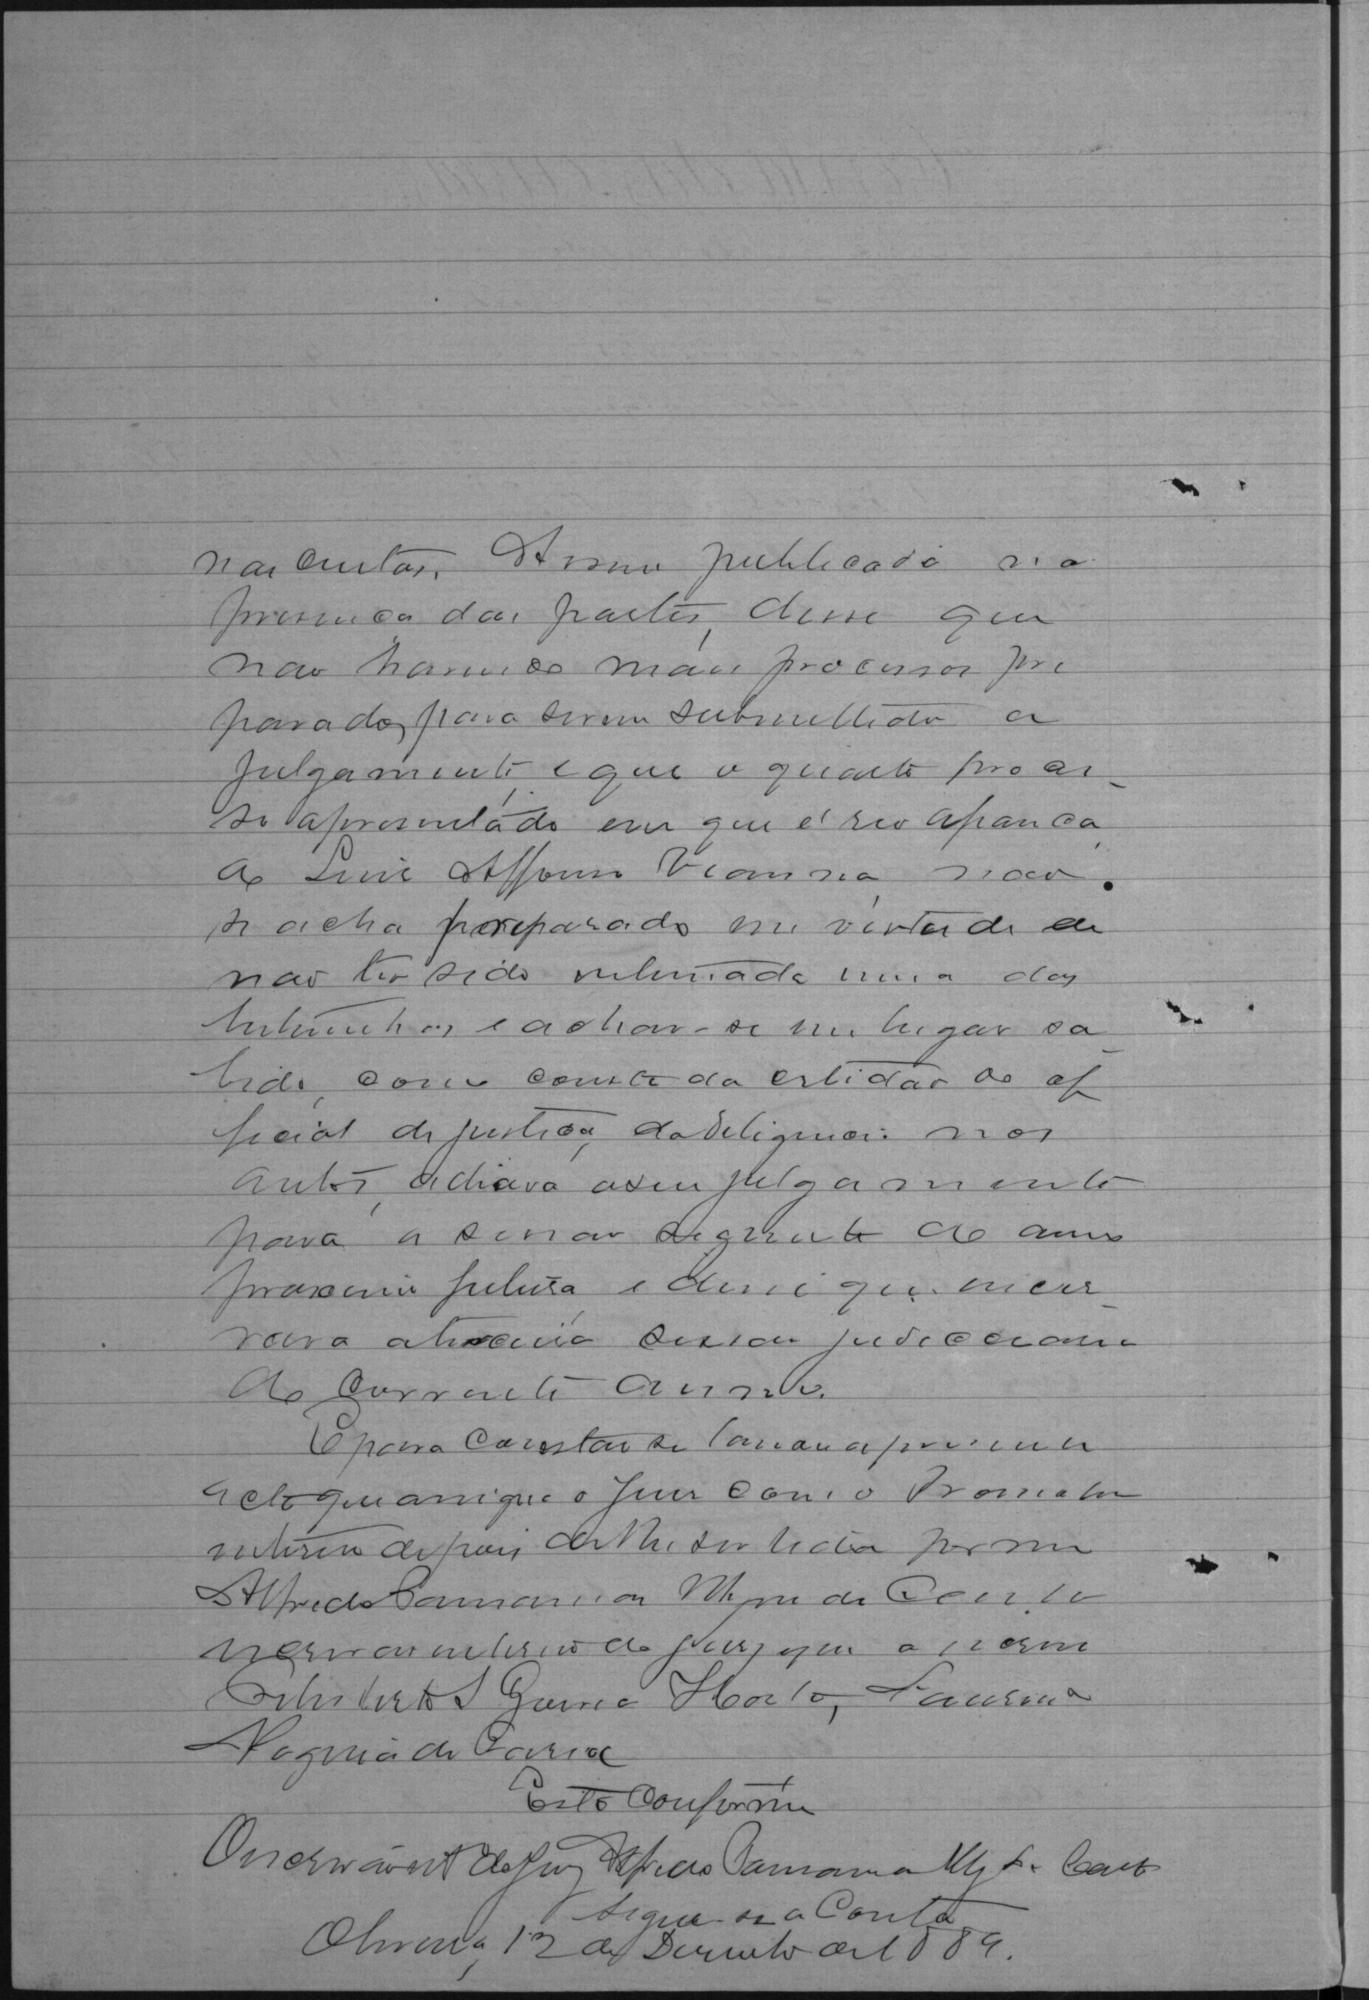 nas custas. E sendo publicada na
presença das partes, disse que
nao havendo mais processos pre
parados para serem submettido a
julgamento, e que o quarto proces-
so apresentado em que é reo afiança
do Luis Affonso Vianna, nao
se acha preparado em virtude de
nao ter sido intimada uma das
testimunhas e achar-se em lugar sa
bido, como consta da certidão do of
ficial de justiça, da deligencia nos
autos, adiava o seu julgamento
para a sessao seguinte do anno
proximo futuro, e disse que encer
rava a terceira sessao judiciaria
do corrente anno.
E para constar se lavrou a presente
acto que assigna o Juiz com o Promotor
interino depois de lhe ser lida por mim
Alfredo de Couto
escrivao interino do jury que o escrevi
Horta,
de Faria
Está conforme
O escrivão int do Jury Alfredo Couto
Segue-se a Conta
Oliveira, 12 de Dezembro de 1889.